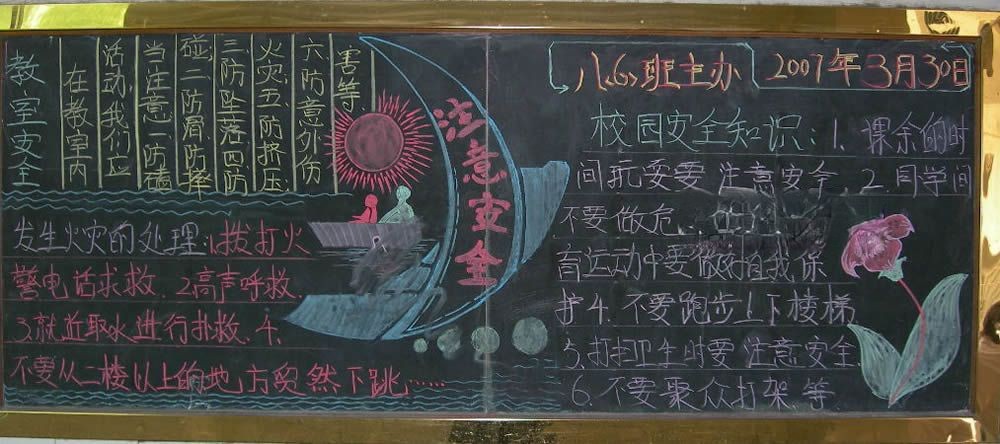 教室安全
在教室内
活动,我们应
当注意一防磕
碰二防滑、防摔
三防坠落四防
火灾五、防挤压
六、防意外伤
害等
发生火灾的处理:1.拨打火
警电话求救.2.高声呼救.
3.就近取水进行扑救.4.
不要从二楼以上的地方突然下跳……
注意安全
八<6>班主办 2007年3月30日
校园安全知识:1.课余的时
间玩耍要注意安全 2.同学间
不要做危
育运动中要做好自我保
护4.不要跑步上下楼梯
5.打扫卫生时要注意安全
6.不要聚众打架.等.